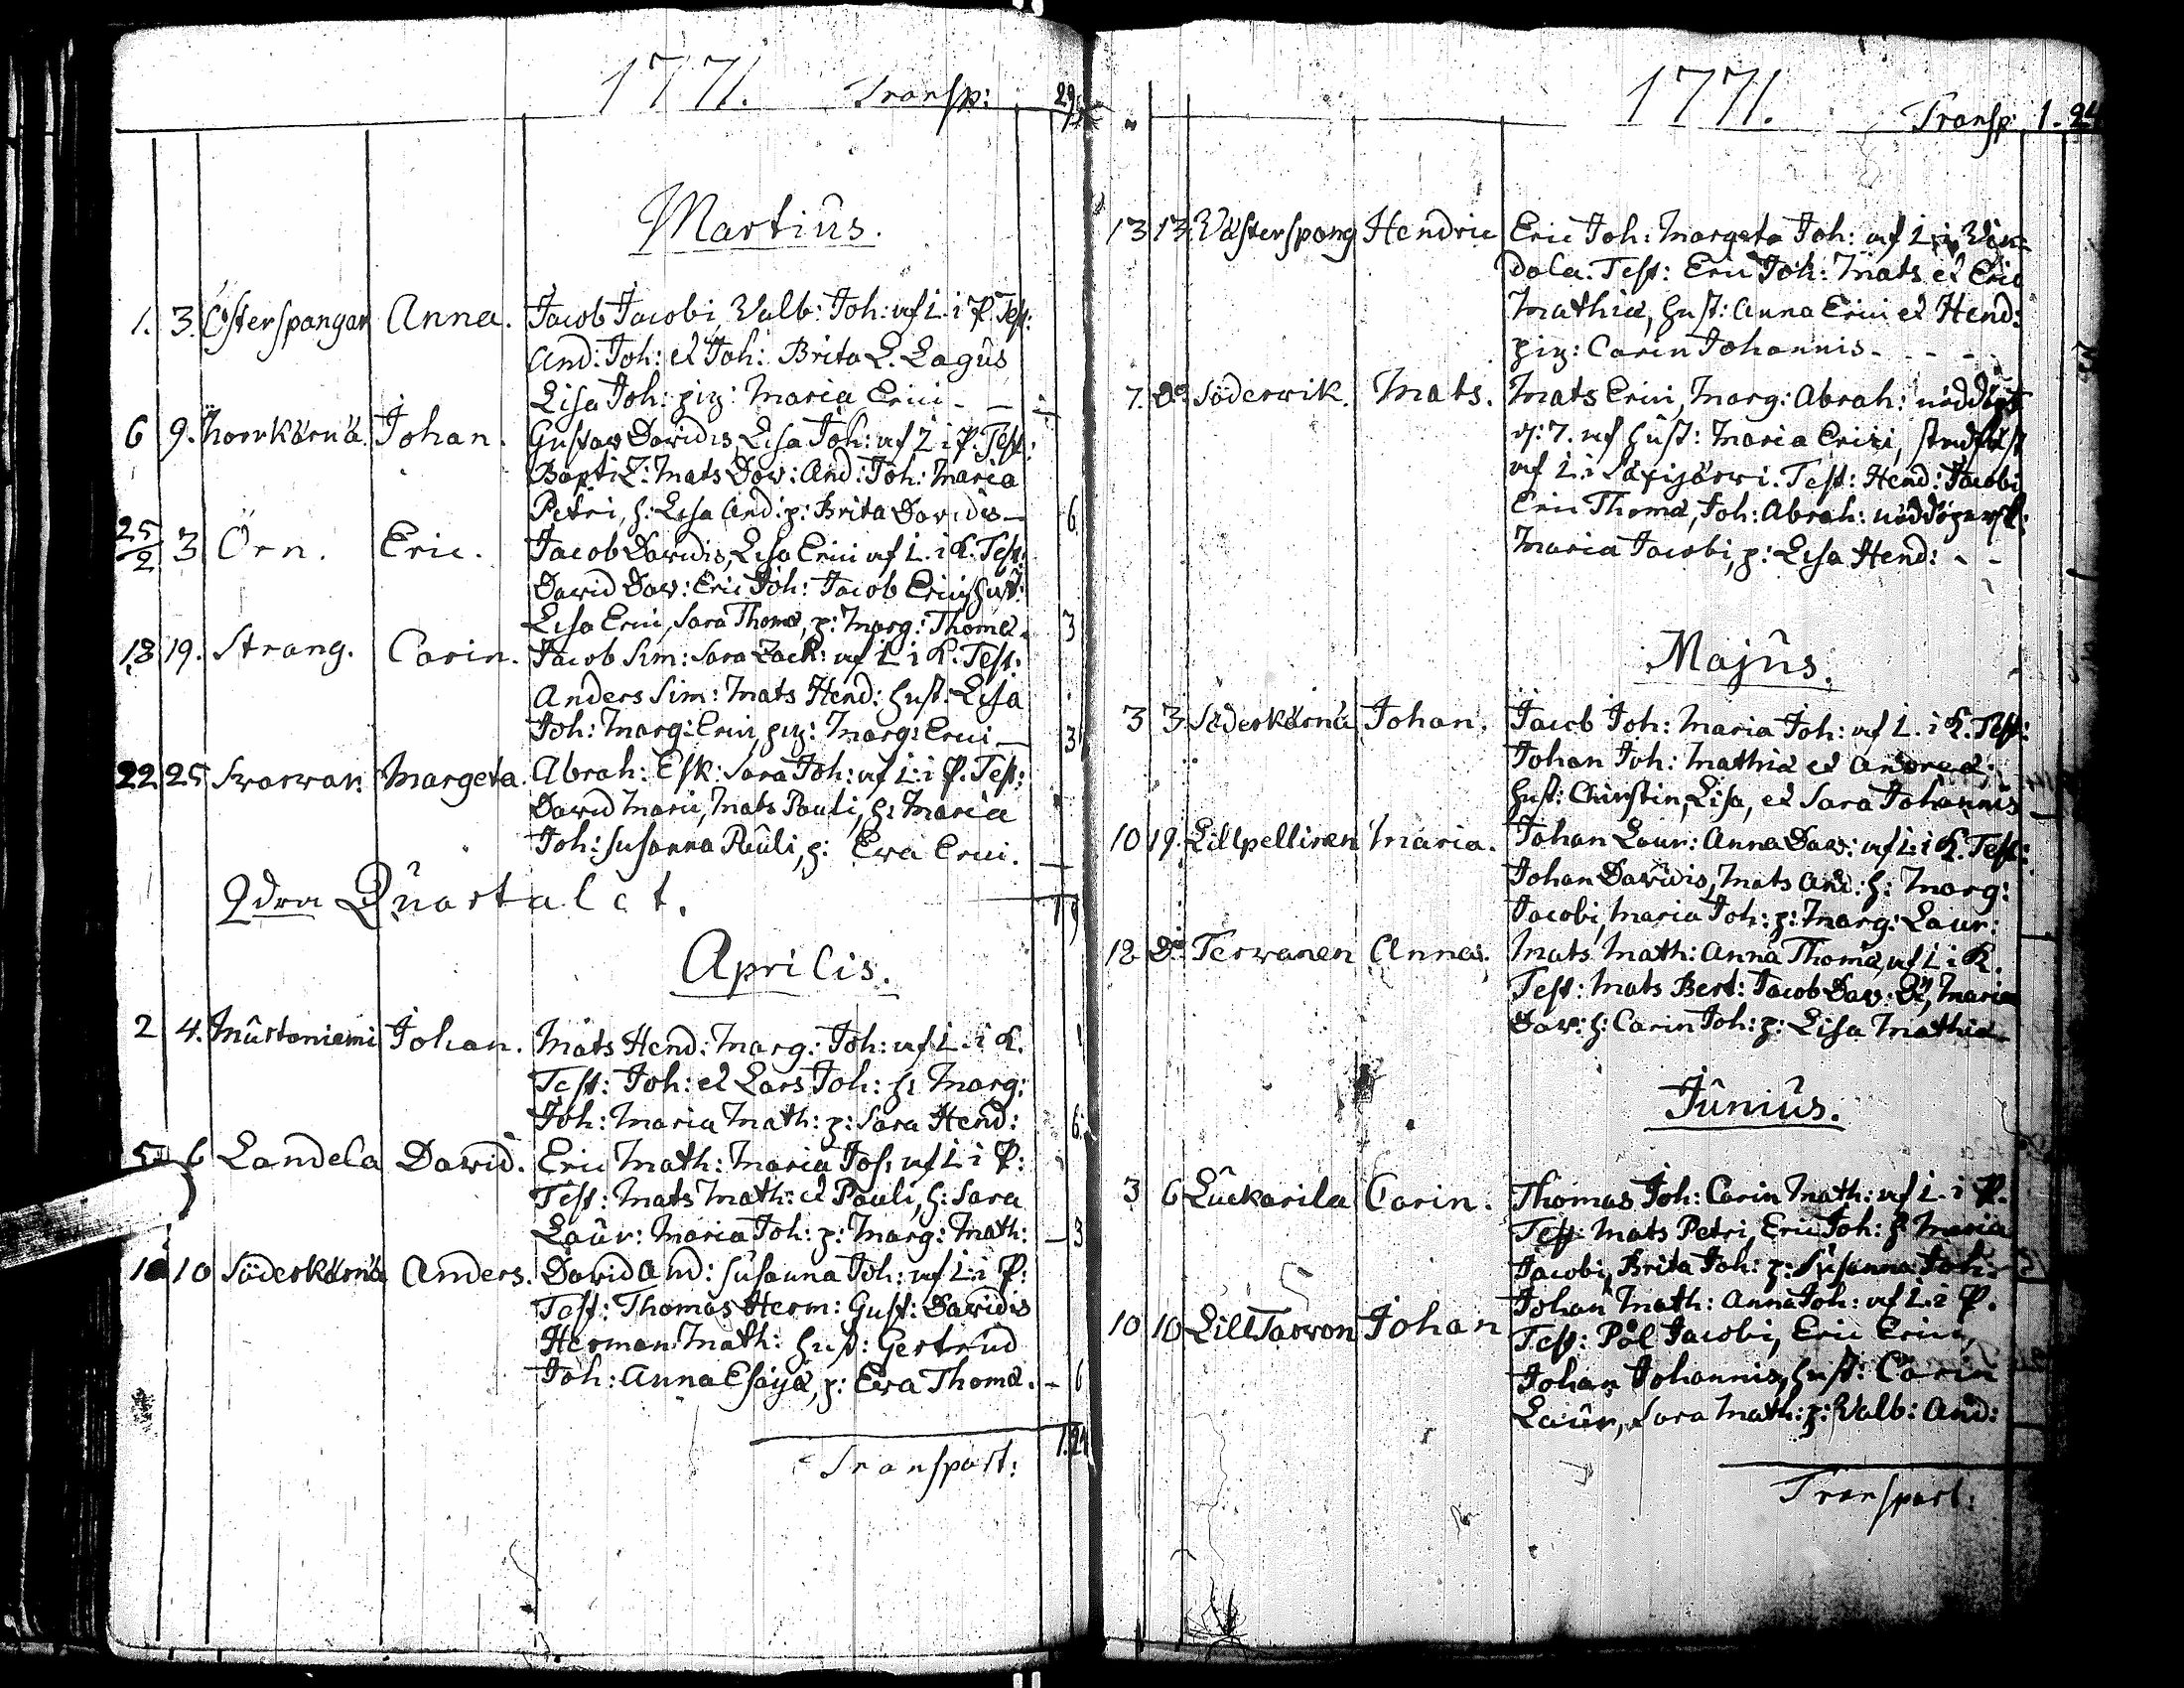 1771. Transp: 29
Martius.
1. 3. Österspangar Anna. Jacob Jacobi, Valb: Joh: af L. i P. Test:
And: Joh: et Joh: Brita L. Lagus
Lisa Joh: pig: Maria Erici - -
6 9. Norrkärnä. Johan. Gustav Davidis, Lisa Joh: af L i P. Test:
Baptiz: Mats Dav: And: Joh: Maria
Petri, h: Lisa And: p: Brita Davidis - 6
25/2 3 Örn. Eric. Jacob Davidis, Lisa Erici af L. i K. Test:
David Dav: Eric Joh: Jacob Erici, hust:
Lisa Erici, Sara Thomæ, p: Marg: Thomæ. 3
18 19. Strang. Carin. Jacob Sim: Sara Zach: af L i K. Test:
Anders Sim: Mats Hend: hust: Lisa
Joh: Marg: Erici, pig: Marg: Erici - 3
22 25 Svarvar. Margeta. Abrah: Esk: Sara Joh: af L: i P. Test:
David Marci, Mats Pauli, h: Maria
Joh: Susanna Pauli, p: Eva Erici. -
2dra Quartalet.
Aprilis.
2 4. Mustaniemi Johan. Mats Hend: Marg: Joh: af L. i K.
Test: Joh: et Lars Joh: h: Marg:
Joh: Maria Math: p: Sara Hend: 6.
5 6 Landela David. Eric Math: Maria Jos: af L i P:
Test: Mats Math: et Pauli, h: Sara
Laur: Maria Joh: p: Marg: Math: - 3
10 10 Söderkärnä Anders. David And: Susanna Joh: af L: i P:
Test: Thomas Herm: Gust: Davidis
Herman Math: hust: Gertrud
Joh: Anna Esaiæ, p: Eva Thomæ. - 6
Transport: 1.24
1771. Transp: 1. 24
13 13. Västerspang Hendric Eric Joh: Margeta Joh: af L: i Vin-
dala. Test: Eric Joh: Mats et Eric
Mathiæ, hust: Anna Erici et Hend:
pig: Carin Johannis - - -
7. Do. Söderwik. Mats. Mats Erici, Marg: Abrah: nöddöpt
af hust: Maria Erici, stadfäst
af L. i Test: Hend: Jacobi
Eric Thomæ, Joh: Abrah:
Maria Jacobi, p: Lisa Hend: - -
Majus.
3 3 Söderkärnä Johan. Jacob Joh: Maria Joh: af L. i K. Test:
Johan Joh: Mathiæ et Andreæ,
hust: Christin, Lisa, et Sara Johannis
10 19. Lillpellinen Maria. Johan Laur: Anna Dav: af L: i K. Test:
Johan Davidis, Mats And: h: Marg:
Jacobi, Maria Joh: p: Marg: Laur:
18 Do Tervanen Anna. Mats Math: Anna Thomæ, af L i K.
Test: Mats Bert: Jacob Dav: Maria
Dav: h: Carin Joh: p: Lisa Mathiæ
Junius.
3 6 Luckarila Carin. Thomas Joh: Carin Math: af L. i P.
Test: Mats Petri, Eric Joh: h: Maria
Jacobi, Brita Joh: p: Susanna Joh:
10 10 Lill Tarvon Johan Johan Math: Anna Joh: af L. i P.
Test: Pål Jacobi, Eric Erici,
Johan Johannis, hust: Carin
Laur, Sara Math: p: Valb: And:
Transport: